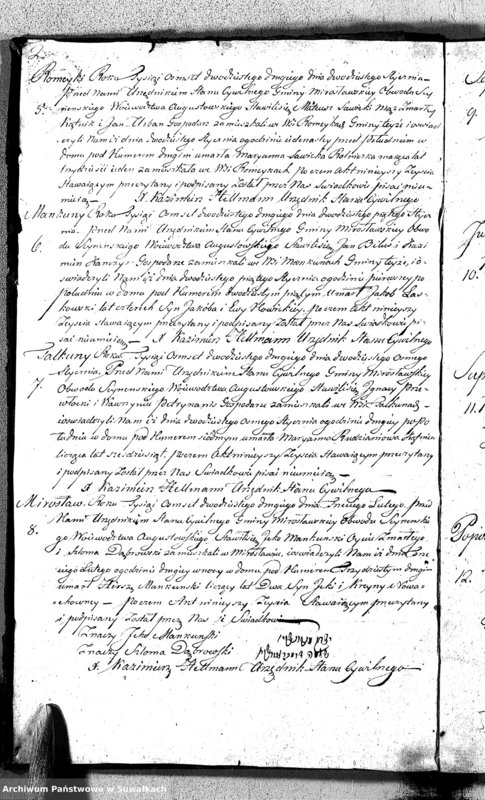 2.
Romeyki Roku Tysiąc Ośmset dwudziestego drugiego dnia dwudziestego Stycznia
przed Nami Urzędnikiem Stanu Cywilnego Gminy Mirosławskiey Obwodu Sey
5. nieńskiego Woiewództwa Augustowskiego Stawiliśię Mateusz Sawicki Mąż Zmarłey
i Jan Urban Gospodarz zamieszkali we Wsi Romeykach Gminy teyże i oswiad
czyli Nam iż dnia dwudziestego Stycznia o godzinie iedenastey przed południem w
domu pod Numerem drugim umarła Maryanna Sawicka Rolniczka maiąca lat
trydzieści ieden zamieszkała we Wsi Romeykach poczem Akt ninieyszy Zeyscia
Stawaiącym przeczytany i podpisany został przez Nas Swiadkowie pisać nieu
mieią X. Kazimierz Hellmann Urzędnik Stanu Cywilnego
Mankuny Roku Tysiąc Ośmset dwudziestego drugiego dnia dwudziestego piątego Stycz
nia. Przed Nami Urzędnikiem Stanu Cywilnego Gminy Mirosławskiey Obwo
6. du Seynenskiego Woiewództwa Augustowskiego Stawiliśię Jan Bielus i Kazi
mierz Gospodarze zamieszkali we Wsi Mankunach Gminy teyże, i o
swiadczyli Nam iż dnia dwudziestego piątego Stycznia o godzinie pierwszey po
południu w domu pod Numerem dwudziestym piątym Umarł Jakob Las
kowski lat czterech Syn Jakóba i Ewy poczem Akt ninieyszy
Zeyscia stawaiącym przeczytany i podpisany został przez Nas Swiadkowie pi
sać nieumieią X. Kazimierz Hellmann Urzędnik Stanu Cywilnego
Palkuny Roku Tysiąc Ośmset dwudziestego drugiego dnia dwudziestego Osmego
Stycznia. Przed Nami Urzędnikiem Stanu Cywilnego Gminy Mirosławskiey
7. Obwodu Seynenskiego Woiewództwa Augustowskiego Stawiliśię Ignacy
i Wawrzyniec Gospodarze zamieszkali we Wsi Palkunach
i oswiadczyli Nam iż dnia dwudziestego Osmego Stycznia o godzinie drugiey popo
łudniu w domu pod Numerem siodmym umarła Maryanna Rudzianowa
licząca lat szescdziesiąt, poczem Akt ninieyszy Zeyscia Stawaiącym przeczytany
i podpisany został przez Nas Swiadkowie pisać nieumieią
X. Kazimierz Hellmann Urzędnik Stanu Cywilnego
Mirosław. Roku Tysiąc Ośmset dwudziestego drugiego dnia Trzeciego Lutego. Przed
8. Nami Urzędnikiem Stanu Cywilnego Gminy Mirosławskiey Obwodu Seynenskie
go Woiewództwa Augustowskiego Stawiliśię Jcko Mankunski Oyciec Zmarłego
i Szloma Dąbrowski zamieszkali w Mirosławiu, i oswiadczyli Nam iż dnia trze
ciego Lutego o godzinie drugiey w nocy w domu pod Numerem Trzydziestym drugim
umarł Hirsz Mankunski liczący lat Dwa Syn Jcki i Kreyny z Nowa
chowney – Poczem Akt ninieyszy Zeyscia Stawaiącym przeczytany
i podpisany został przez Nas i Swiadków
Znaczy Jcko Mankunski
Znaczy Szloma Dąbrowski
X. Kazimierz Hellmann Urzędnik Stanu Cywilnego
9.
10.
11.
12.
Archiwum Państwowe w Suwałkach